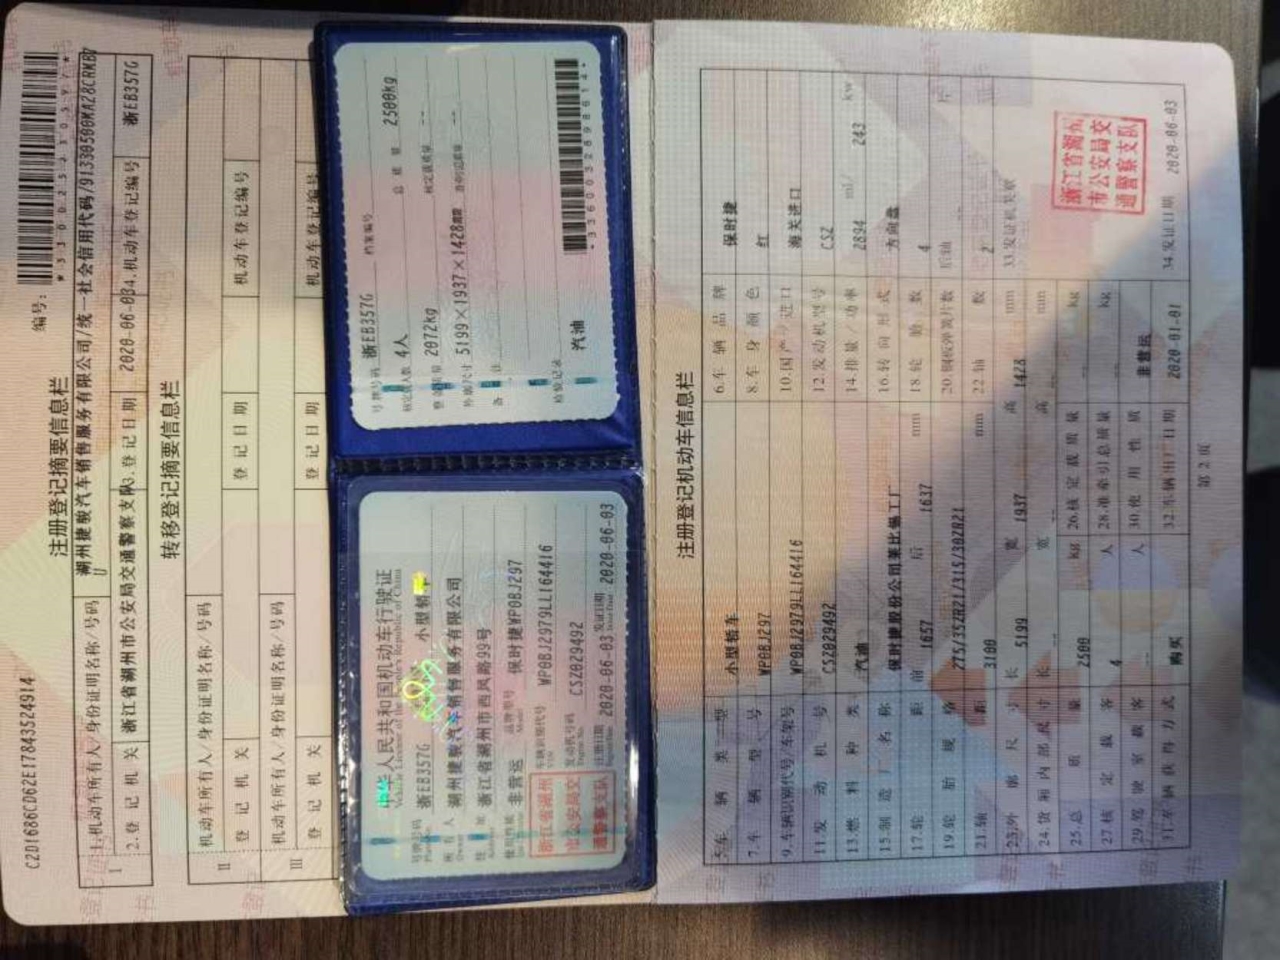 C2D1686CD62E17843524914
编号:
*330025230597*
注册登记摘要信息栏
1.机动车所有人/身份证明名称/号码 湖州捷骏汽车销售服务有限公司/统一社会信用代码/91330500MA28CRMB7
U
I
2.登记机关 浙江省湖州市公安局交通警察支队 3.登记日期 2020-06-03 4.机动车登记编号 浙EB357G
转移登记摘要信息栏
机动车所有人/身份证明名称/号码
II
登记机关 登记日期 机动车登记编号
机动车所有人/身份证明名称/号码
III
登记机关 登记日期 机动车登记编号
中华人民共和国机动车行驶证
Vehicle License of the People's Republic of China
号牌号码 浙EB357G 小型轿车
所有人 湖州捷骏汽车销售服务有限公司
住址 浙江省湖州市西凤路99号
使用性质 非营运 品牌型号 保时捷WP0BJ297
浙江省湖州
市公安局交
通警察支队
车辆识别代号 WP0BJ2979LL164416
发动机号码 CSZ029492
注册日期 2020-06-03 发证日期 2020-06-03
号牌号码 浙EB357G 档案编号
核定载人数 4人 总质量 2500kg
整备质量 2072kg 核定载质量 --
外廓尺寸 5199×1937×1428mm 准牵引总质量 --
备注
检验记录
汽油
*3360032898614*
注册登记机动车信息栏
5.车辆类型 小型轿车 6.车辆品牌 保时捷
7.车辆型号 WP0BJ297 8.车身颜色 红
9.车辆识别代号/车架号 WP0BJ2979LL164416 10.国产/进口 海关进口
11.发动机号 CSZ029492 12.发动机型号 CSZ
13.燃料种类 汽油 14.排量/功率 2894 ml/ 243 kw
15.制造厂名称 保时捷股份公司莱比锡工厂 16.转向形式 方向盘
17.轮距 前 1657 后 1637 mm 18.轮胎数 4
19.轮胎规格 275/35ZR21/315/30ZR21 20.钢板弹簧片数 后轴 -- 片
21.轴距 3100 mm 22.轴数 2
23.外廓尺寸 长 5199 宽 1937 高 1428 mm 33.发证机关章
24.货厢内部尺寸 长 宽 高 mm
浙江省湖州
市公安局交
通警察支队
25.总质量 2500 kg 26.核定载质量 kg
27.核定载客 4 人 28.准牵引总质量 -- kg
29.驾驶室载客 -- 人 30.使用性质 非营运
31.车辆获得方式 购买 32.车辆出厂日期 2020-01-01 34.发证日期 2020-06-03
第2页